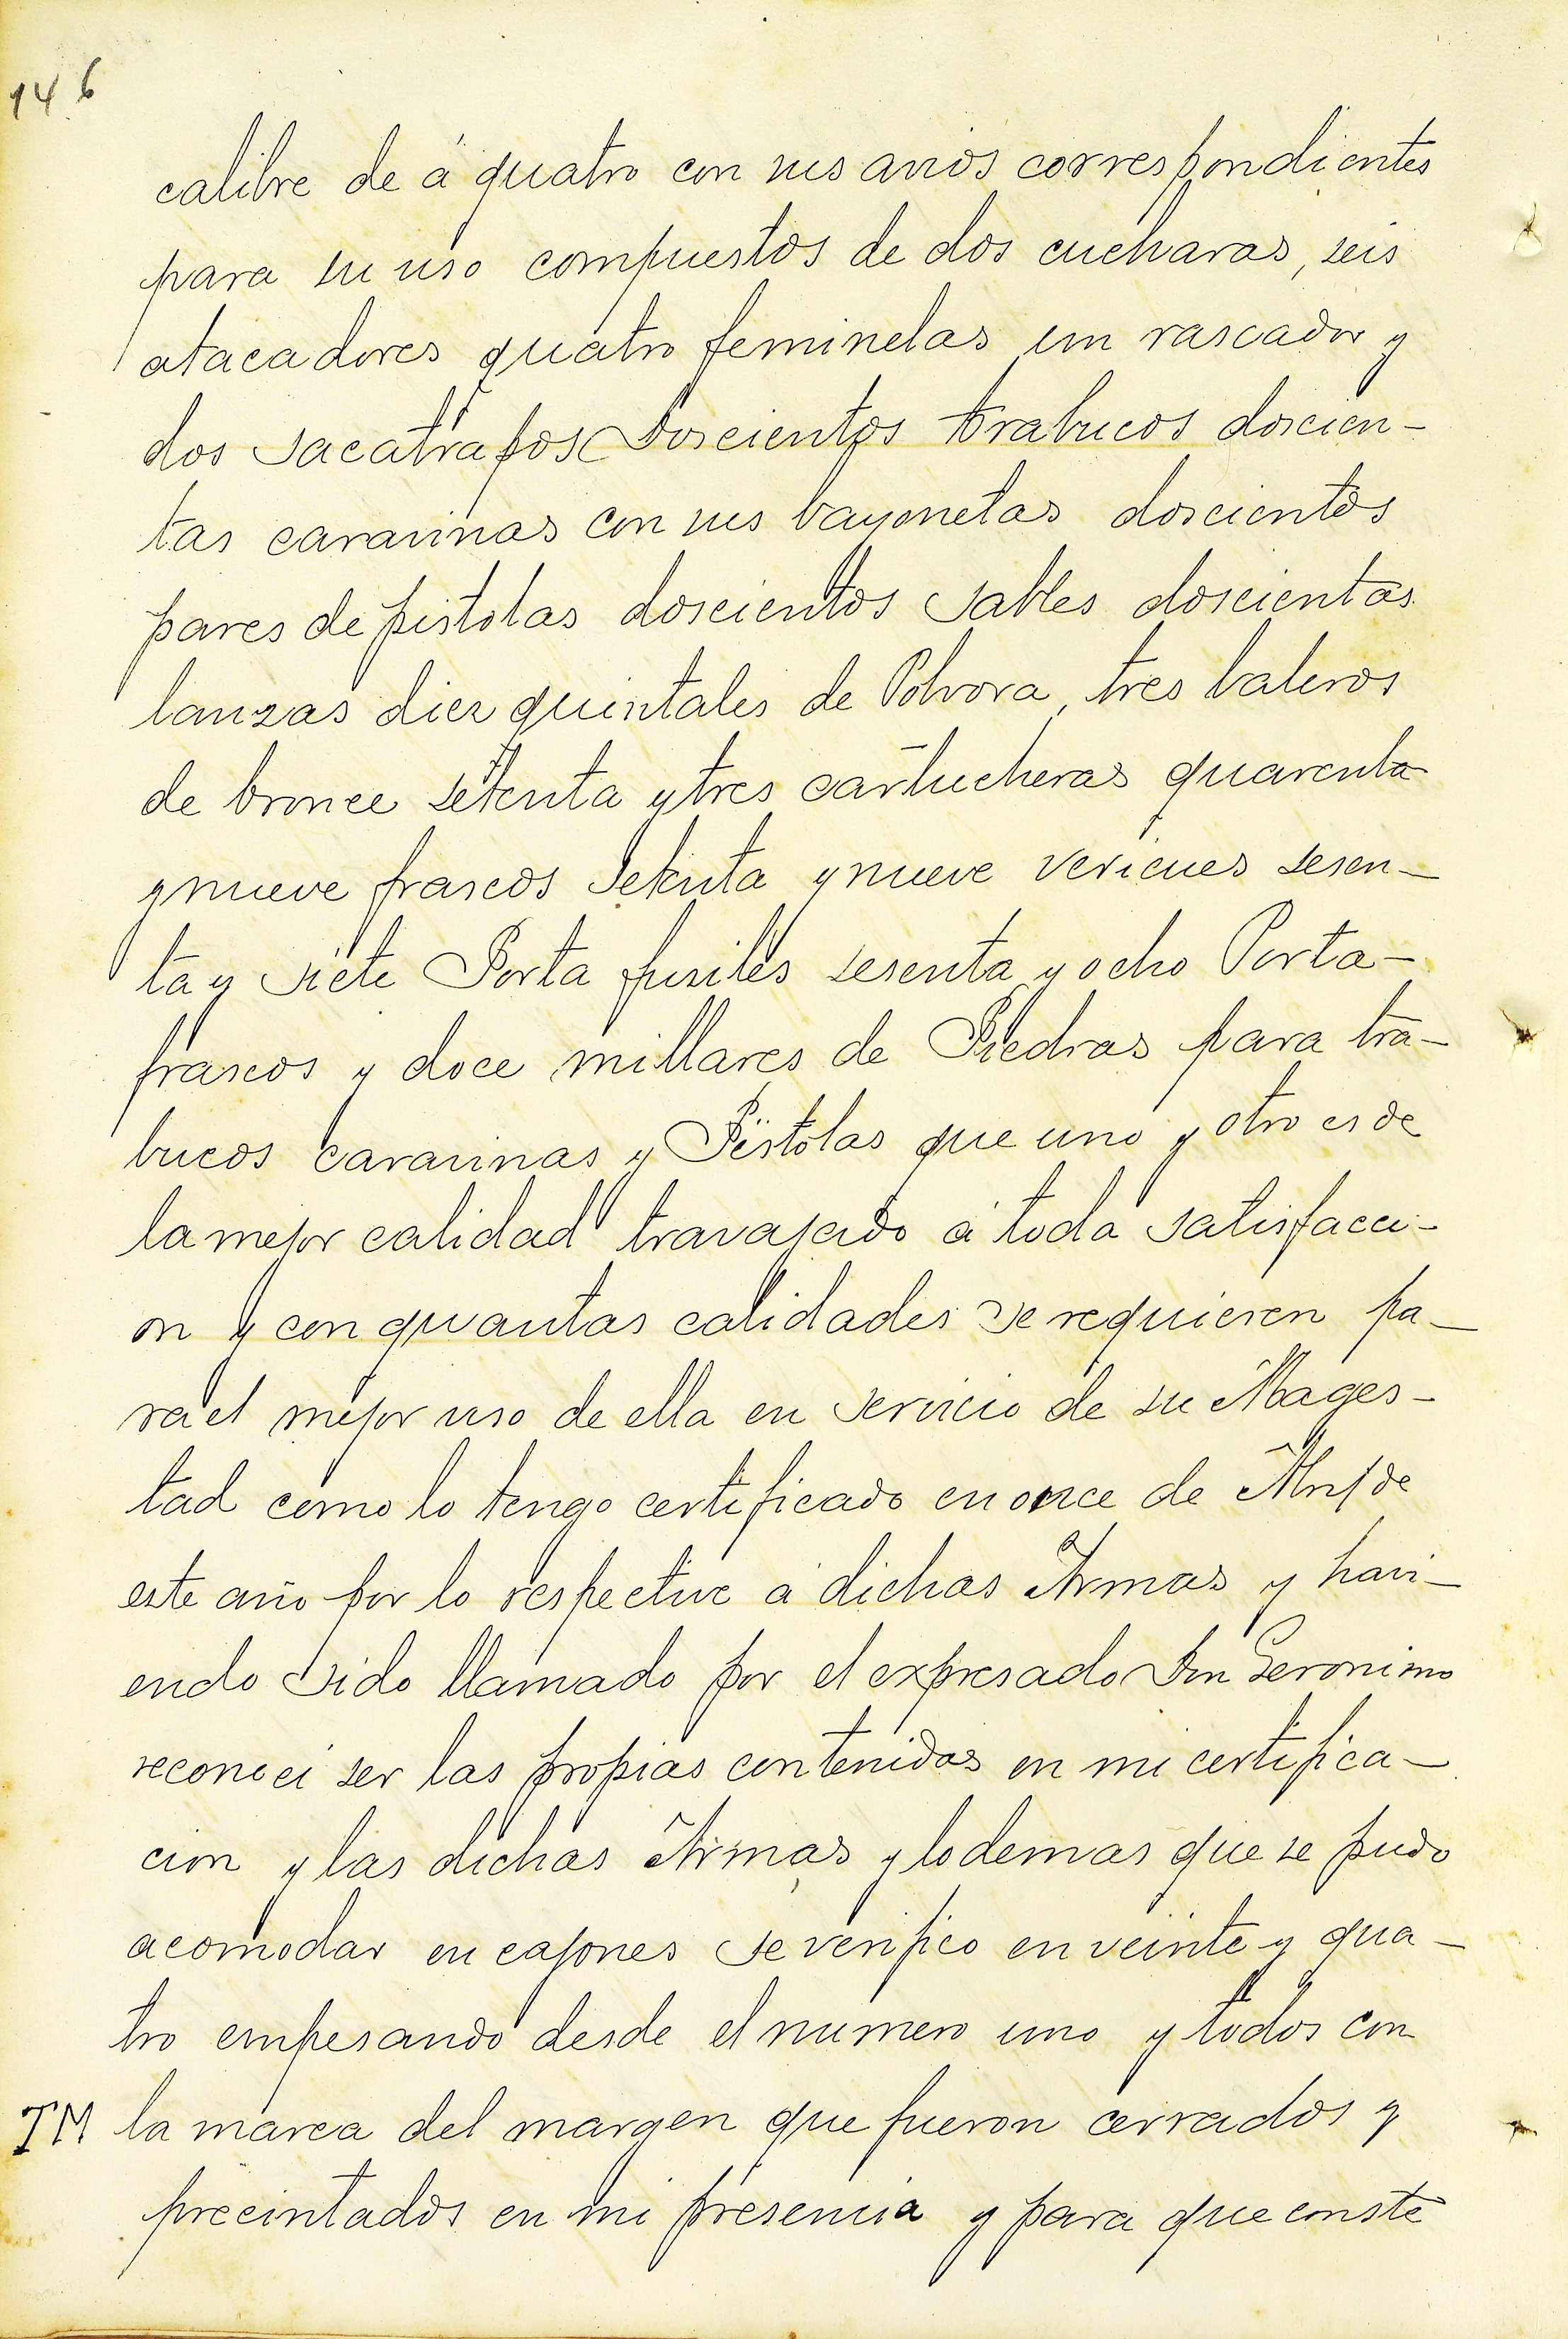 146
calibre de á quatro con sus avios correspondientes
para su uso compuestos de dos cucharas, seis
atacadores quatro feminelas un rascador y
dos sacatrapos Doscientos trabucos doscien-
tas caravinas con sus bayonetas doscientos
pares de pistolas doscientos sables doscientas
lanzas diez quintales de Polvora, tres baleros
de bronce setenta y tres cartucheras quarenta
y nueve frascos setenta y nueve vericues sesen-
ta y siete Porta fusiles sesenta y ocho Porta-
frascos y doce millares de Piedras para tra-
bucos caravinas y Pistolas que uno y otro es de
la mejor calidad travajado á toda satisfacci-
on y con quantas calidades se requieren pa-
ra el mejor uso de ella en servicio de su Mages-
tad como lo tengo certificado en once de de
este año por lo respective á dichas Armas y havi-
endo sido llamado por el expresado Don Geronimo
reconoci ser las propias contenidas en mi certifica-
cion y las dichas Armas y lo demas que se pudo
acomodar en cajones se verifico en veinte y qua-
tro empesando desde el numero uno y todos con
TM la marca del margen que fueron cerrados y
precintados en mi presencia y para que conste